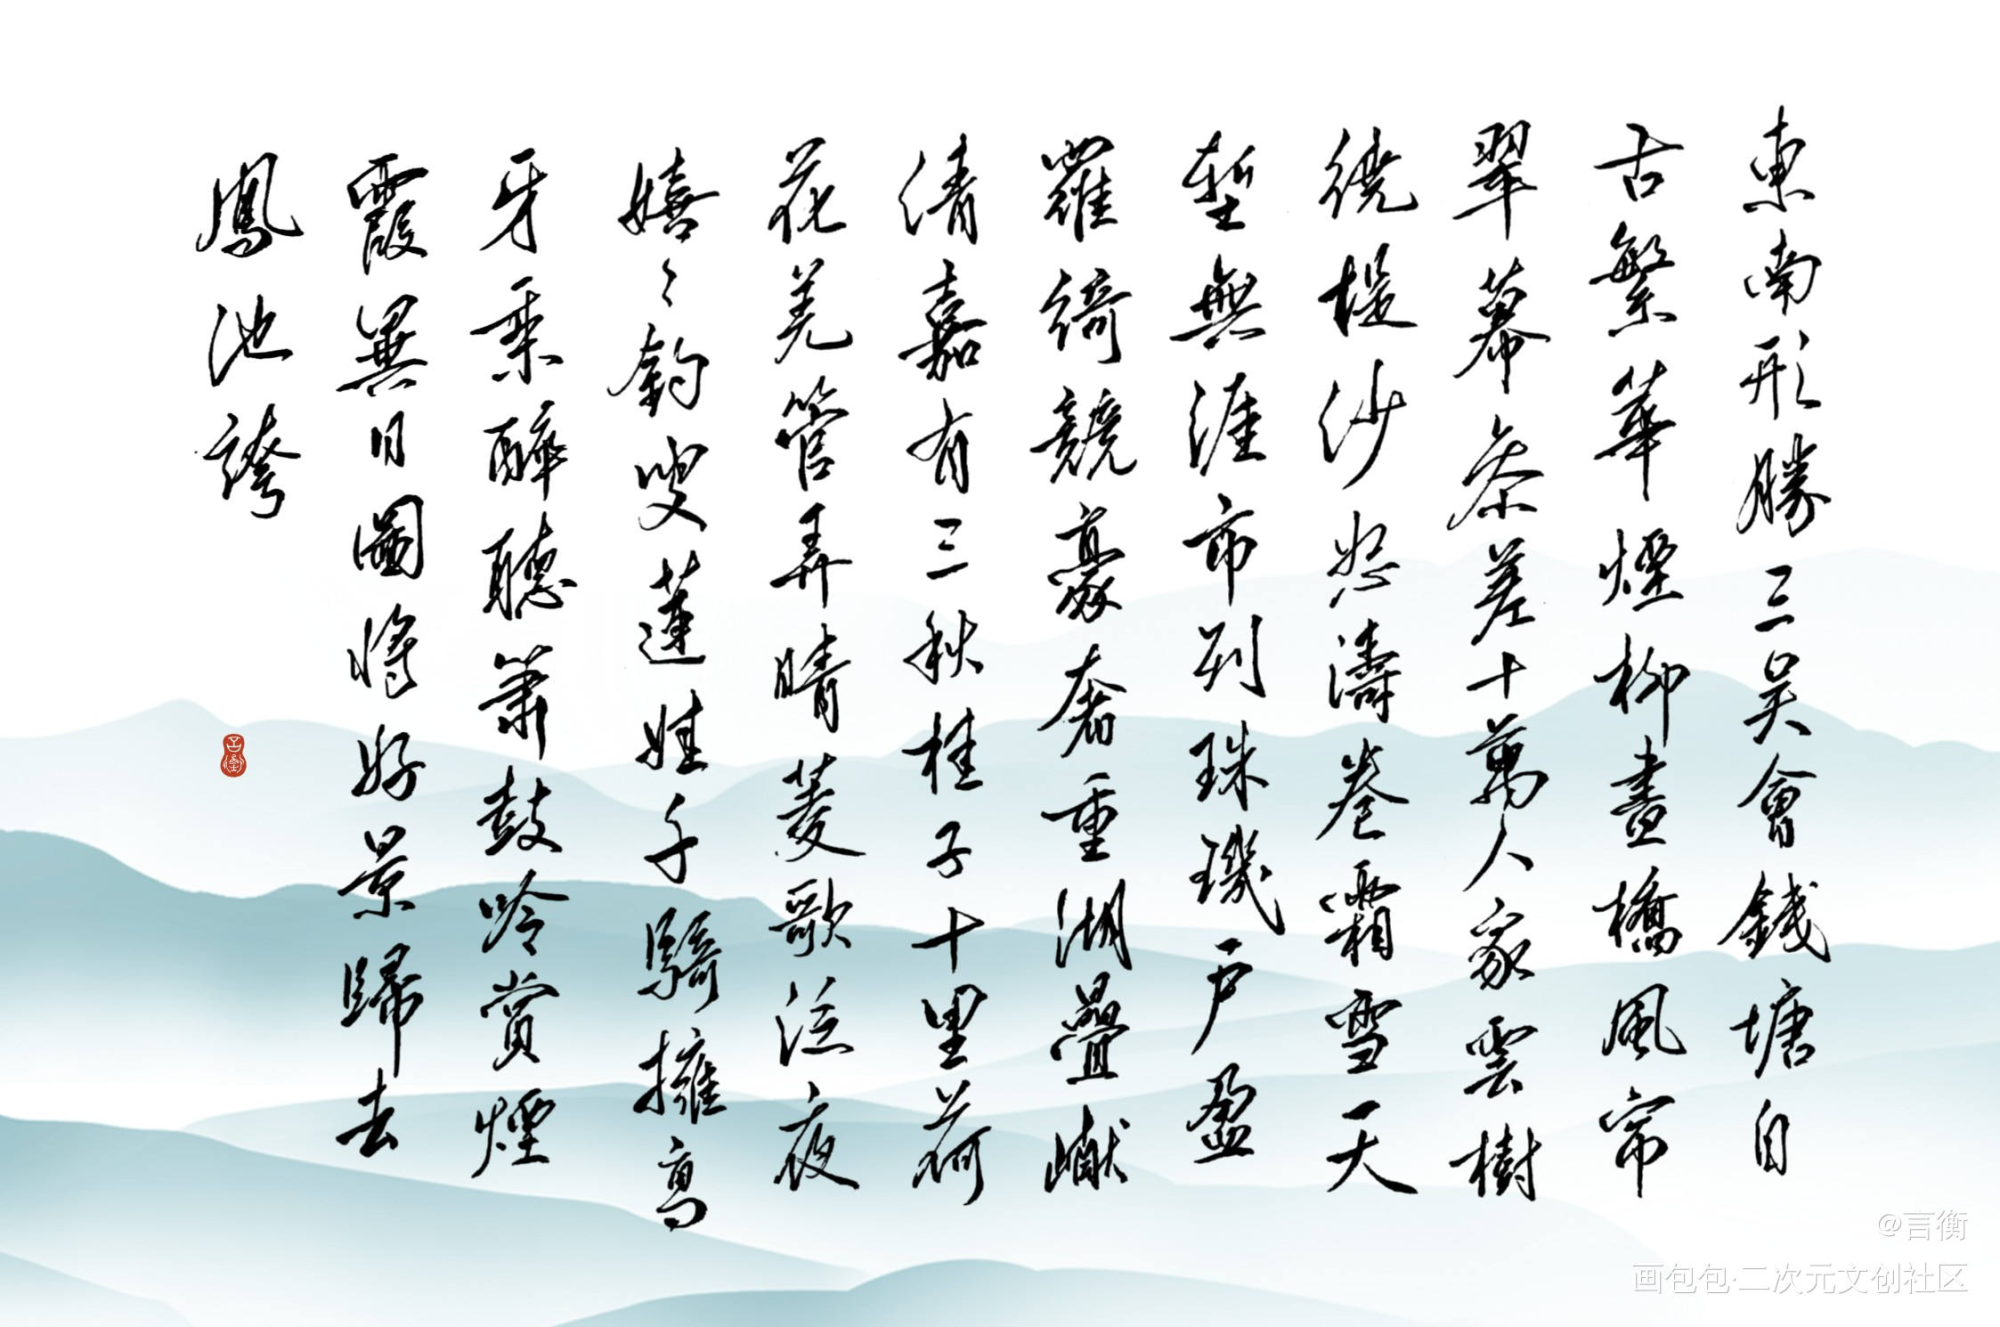 東南形勝三吴會錢塘自
古繁華煙柳畫橋風帘
翠幕参差十萬人家雲樹
繞堤沙怒濤卷霜雪天
塹無涯市列珠璣户盈
羅綺競豪奢重湖疊巘
清嘉有三秋桂子十里荷
花羌管弄晴菱歌泛夜
嬉〻釣叟蓮娃千騎擁高
牙乘醉聽簫鼓吟賞煙
霞異日圖將好景歸去
鳳池誇
言衡
@言衡
画包包·二次元文创社区